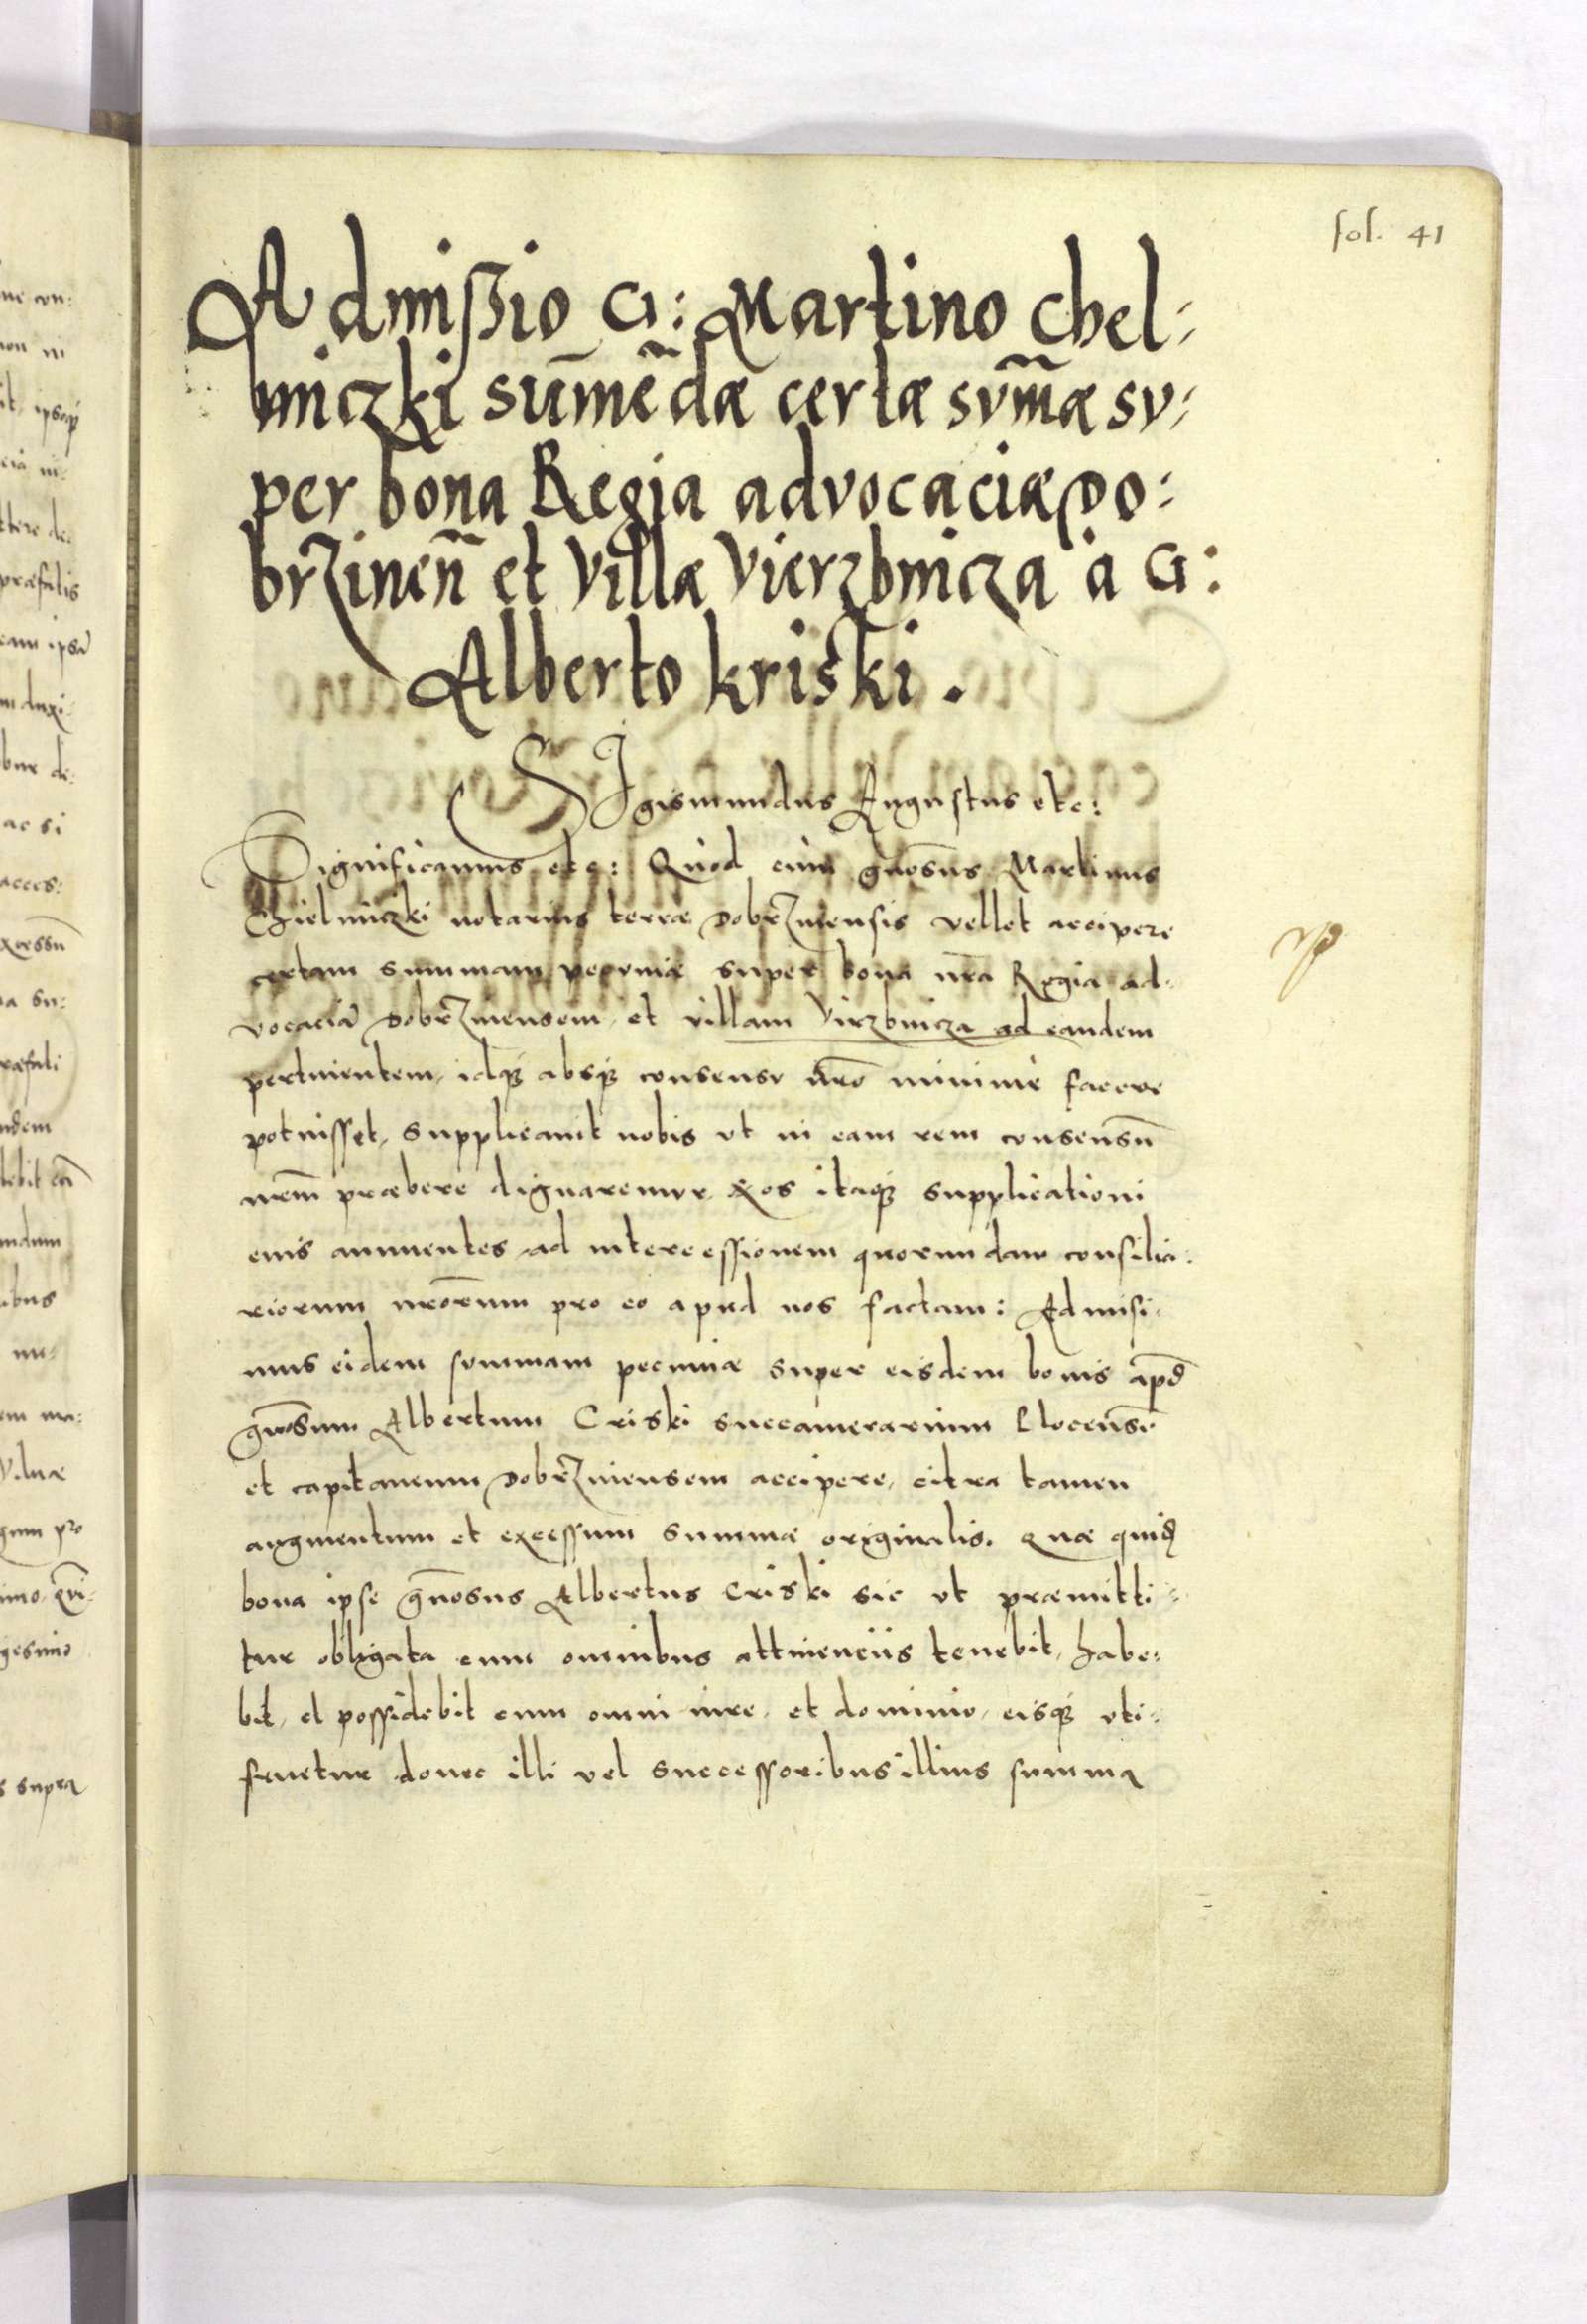 fol. 41
Admißio G: Martino Chel-
miczki sūmēdæ certæ sṽmæ sv-
per bona Regia advocaciæ Do-
brzineñ et Villæ Vierzbnicza a G:
Alberto Kriski.
SIgismundus Augustus etc:
Significamus etc: Quod cum gnōsus Martinus
Chielmiczki notarius terræ Dobrzinensis vellet accipere
certam summam pecuniæ super bona nr̃a Regia ad-
vocaciā Dobrzinensem, et villam Virzbnicza ad eandem
pertinentem, idq́ absq́ consensv nr̃o minimè facere
potuisset, supplicauit nobis vt in eam rem consensū
nr̃m præbere dignaremvr. Nos itaq́ supplicationi
eius annuentes, ad intercessionem quorundam consilia-
riorum nr̃orum pro eo apud nos factam: Admisi-
mus eidem summam pecuniæ super eisdem bonis apd̄
gnōsum Albertum Criski succamerarium Plocensē
et capitaneum Dobrzinensem accipere, citra tamen
augmentum et excessum summæ originalis. Quæ quid̄
bona ipse gnōsus Albertus Criski sic vt præmitti-
tur obligata cum omnibus attinenciis tenebit, habe-
bit, et possidebit cum omni iure, et dominio, eisq́ vti-
fruetur donec illi vel successoribus illius summa